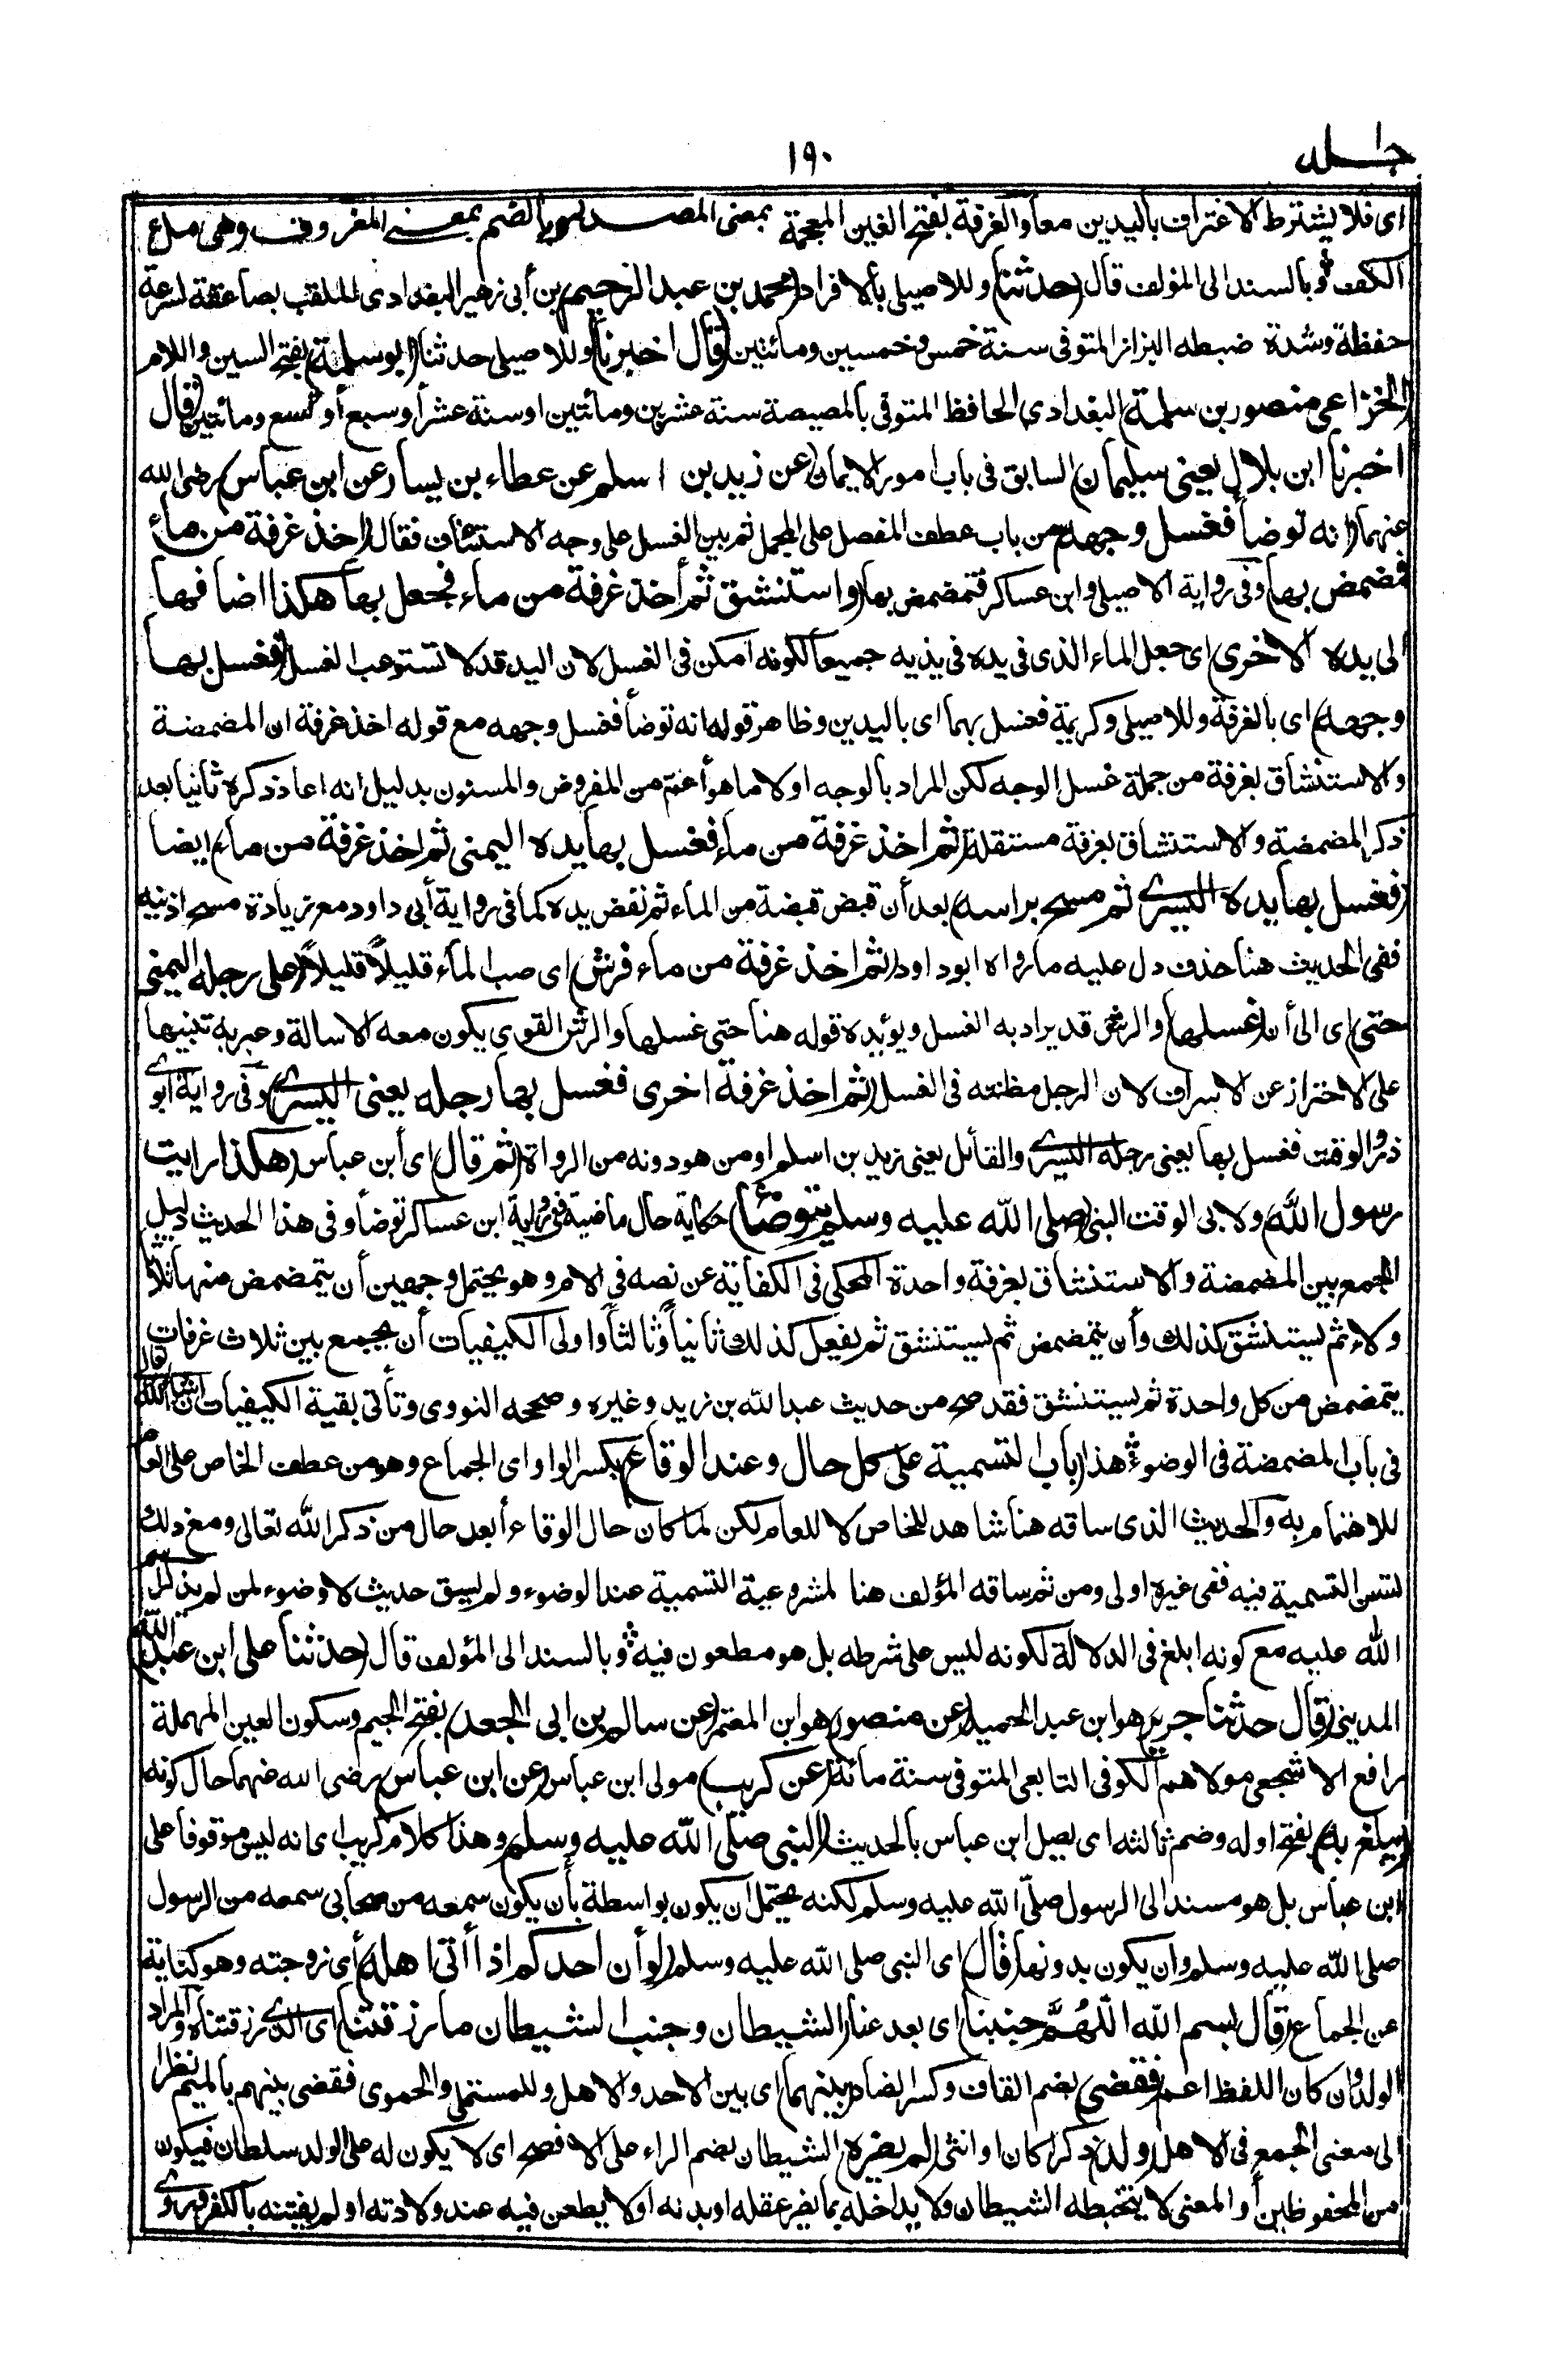 جلد ١
١٩٠
اى فلا يشترط الاغتراف باليدين معا والغرفة بفتح الغين المعجمة بمعنى المصدر وبالضم بمعنى المغروف وهى ملء
الكف وبالسند الى المؤلف قال (حدثنا) وللاصيلى بالافراد (محمد بن عبد الرحيم) بن أبى زهير البغدادى الملقب بصاعقة لسرعة
حفظه وشدة ضبطه البزاز المتوفى سنة خمس وخمسين ومائتين (قال اخبرنا) وللاصيلى حدثنا (ابو سلمة) بفتح السين واللام
(الخزاعى منصور بن سلمة) البغدادى الحافظ المتوفى بالمصيصة سنة عشرين ومائتين او سنة عشر أو سبع أو تسع ومائتين (قال
اخبرنا ابن بلال يعنى سليمان) السابق فى باب امور الايمان (عن زيد بن اسلم عن عطاء بن يسار عن ابن عباس) رضى الله
عنهما (انه توضأ فغسل وجهه) من باب عطف المفصل على المجمل ثم بين الغسل على وجه الاستئناف فقال (اخذ غرفة من ماء
فمضمض بها) وفى رواية الاصيلى وابن عساكر فتمضمض بها (واستنشق ثم أخذ غرفة من ماء فجعل بها هكذا اضافها
الى يده الاخرى) اى جعل الماء الذى فى يده فى يديه جميعا لكونه امكن فى الغسل لان اليد قد لا تستوعب الغسل (فغسل بها
وجهه) اى بالغرفة وللاصيلى وكريمة فغسل بهما اى باليدين وظاهر قوله انه توضأ فغسل وجهه مع قوله اخذ غرفة ان المضمضة
والاستنشاق بغرفة من جملة غسل الوجه لكن المراد بالوجه اولا ما هو أعم من المفروض والمسنون بدليل انه اعاد ذكره ثانيا بعد
ذكر المضمضة والاستنشاق بغرفة مستقلة (ثم اخذ غرفة من ماء فغسل بها يده اليمنى ثم اخذ غرفة من ماء) ايضا
(فغسل بها يده اليسرى ثم مسح براسه) بعد أن قبض قبضة من الماء ثم نفض يده كما فى رواية أبى داود مع زيادة مسح اذنيه
ففى الحديث هنا حذف دل عليه ما رواه ابو داود (ثم اخذ غرفة من ماء فرش) اى صب الماء قليلاً قليلاً (على رجله اليمنى
حتى) اى الى أن (غسلها) والرش قد يراد به الغسل ويؤيده قوله هنا حتى غسلها والرش القوى يكون معه الاسالة وعبر به تنبيها
على الاحتراز عن الاسراف لان الرجل مظنته فى الغسل (ثم اخذ غرفة اخرى فغسل بها رجله يعنى اليسرى) وفى رواية ابوى
ذر والوقت فغسل بها يعنى رجله اليسرى والقائل يعنى زيد بن اسلم او من هو دونه من الرواة (ثم قال) اى ابن عباس (هكذا رايت
رسول الله) ولابى الوقت النبى (صلى الله عليه وسلم يتوضأ) حكاية حال ماضية وفى رواية ابن عساكر توضأ وفى هذا الحديث دليل
الجمع بين المضمضة والاستنشاق بغرفة واحدة المحكى فى الكفاية عن نصه فى الام وهو يحتمل وجهين أن يتمضمض منها ثلاثا
ولاء ثم يستنشق كذلك وأن يتمضمض ثم يستنشق ثم يفعل كذلك ثانياً وثالثاً واولى الكيفيات أن يجمع بين ثلاث غرفات
يتمضمض من كل واحدة ثم يستنشق فقد صح من حديث عبد الله بن زيد وغيره وصححه النووى وتأتى بقية الكيفيات ان شاء الله تعالى
فى باب المضمضة فى الوضوء هذا (باب التسمية على كل حال وعند الوقاع) بكسر الواو اى الجماع وهو من عطف الخاص على العام
للاهتمام به والحديث الذى ساقه هنا شاهد للخاص لا للعام لكن لما كان حال الوقاع أبعد حال من ذكر الله تعالى ومع ذلك
تسن التسمية فيه ففى غيره اولى ومن ثم ساقه المؤلف هنا لمشروعية التسمية عند الوضوء ولم يسق حديث لا وضوء لمن لم يذكر اسم
الله عليه مع كونه ابلغ فى الدلالة لكونه ليس على شرطه بل هو مطعون فيه وبالسند الى المؤلف قال (حدثنا على ابن عبد الله)
المدينى (قال حدثنا جرير) هو ابن عبد الحميد (عن منصور) هو ابن المعتمر (عن سالم بن ابى الجعد) بفتح الجيم وسكون العين المهملة
رافع الاشجعى مولاهم الكوفى التابعى المتوفى سنة مائة (عن كريب) مولى ابن عباس (عن ابن عباس) رضى الله عنهما حال كونه
(يبلغ به) بفتح اوله وضم ثالثه اى يصل ابن عباس بالحديث (النبى صلى الله عليه وسلم) وهذا كلام كريب اى انه ليس موقوفا على
ابن عباس بل هو مسند الى الرسول صلى الله عليه وسلم لكنه يحتمل ان يكون بواسطة بأن يكون سمعه من صحابى سمعه من الرسول
صلى الله عليه وسلم وان يكون بدونها (قال) اى النبى صلى الله عليه وسلم (لو أن احدكم اذا أتى اهله) أى زوجته وهو كناية
عن الجماع (قال بسم الله اللهم جنبنا) اى بعد عنا (الشيطان وجنب الشيطان ما رزقتنا) اى الذى رزقتناه والمراد
الولد وان كان اللفظ اعم (فقضى) بضم القاف وكسر الضاد (بينهما) اى بين الاحد والاهل وللمستملى والحموى فقضى بينهم بالميم نظرا
الى معنى الجمع فى الاهل (ولد) ذكرا كان او انثى (لم يضره) الشيطان بضم الراء على الافصح اى لا يكون له على الولد سلطان فيكون
من المحفوظين أو المعنى لا يتخبطه الشيطان ولا يداخله بما يضر عقله او بدنه او لا يطعن فيه عند ولادته او لم يفتنه بالكفر فروى